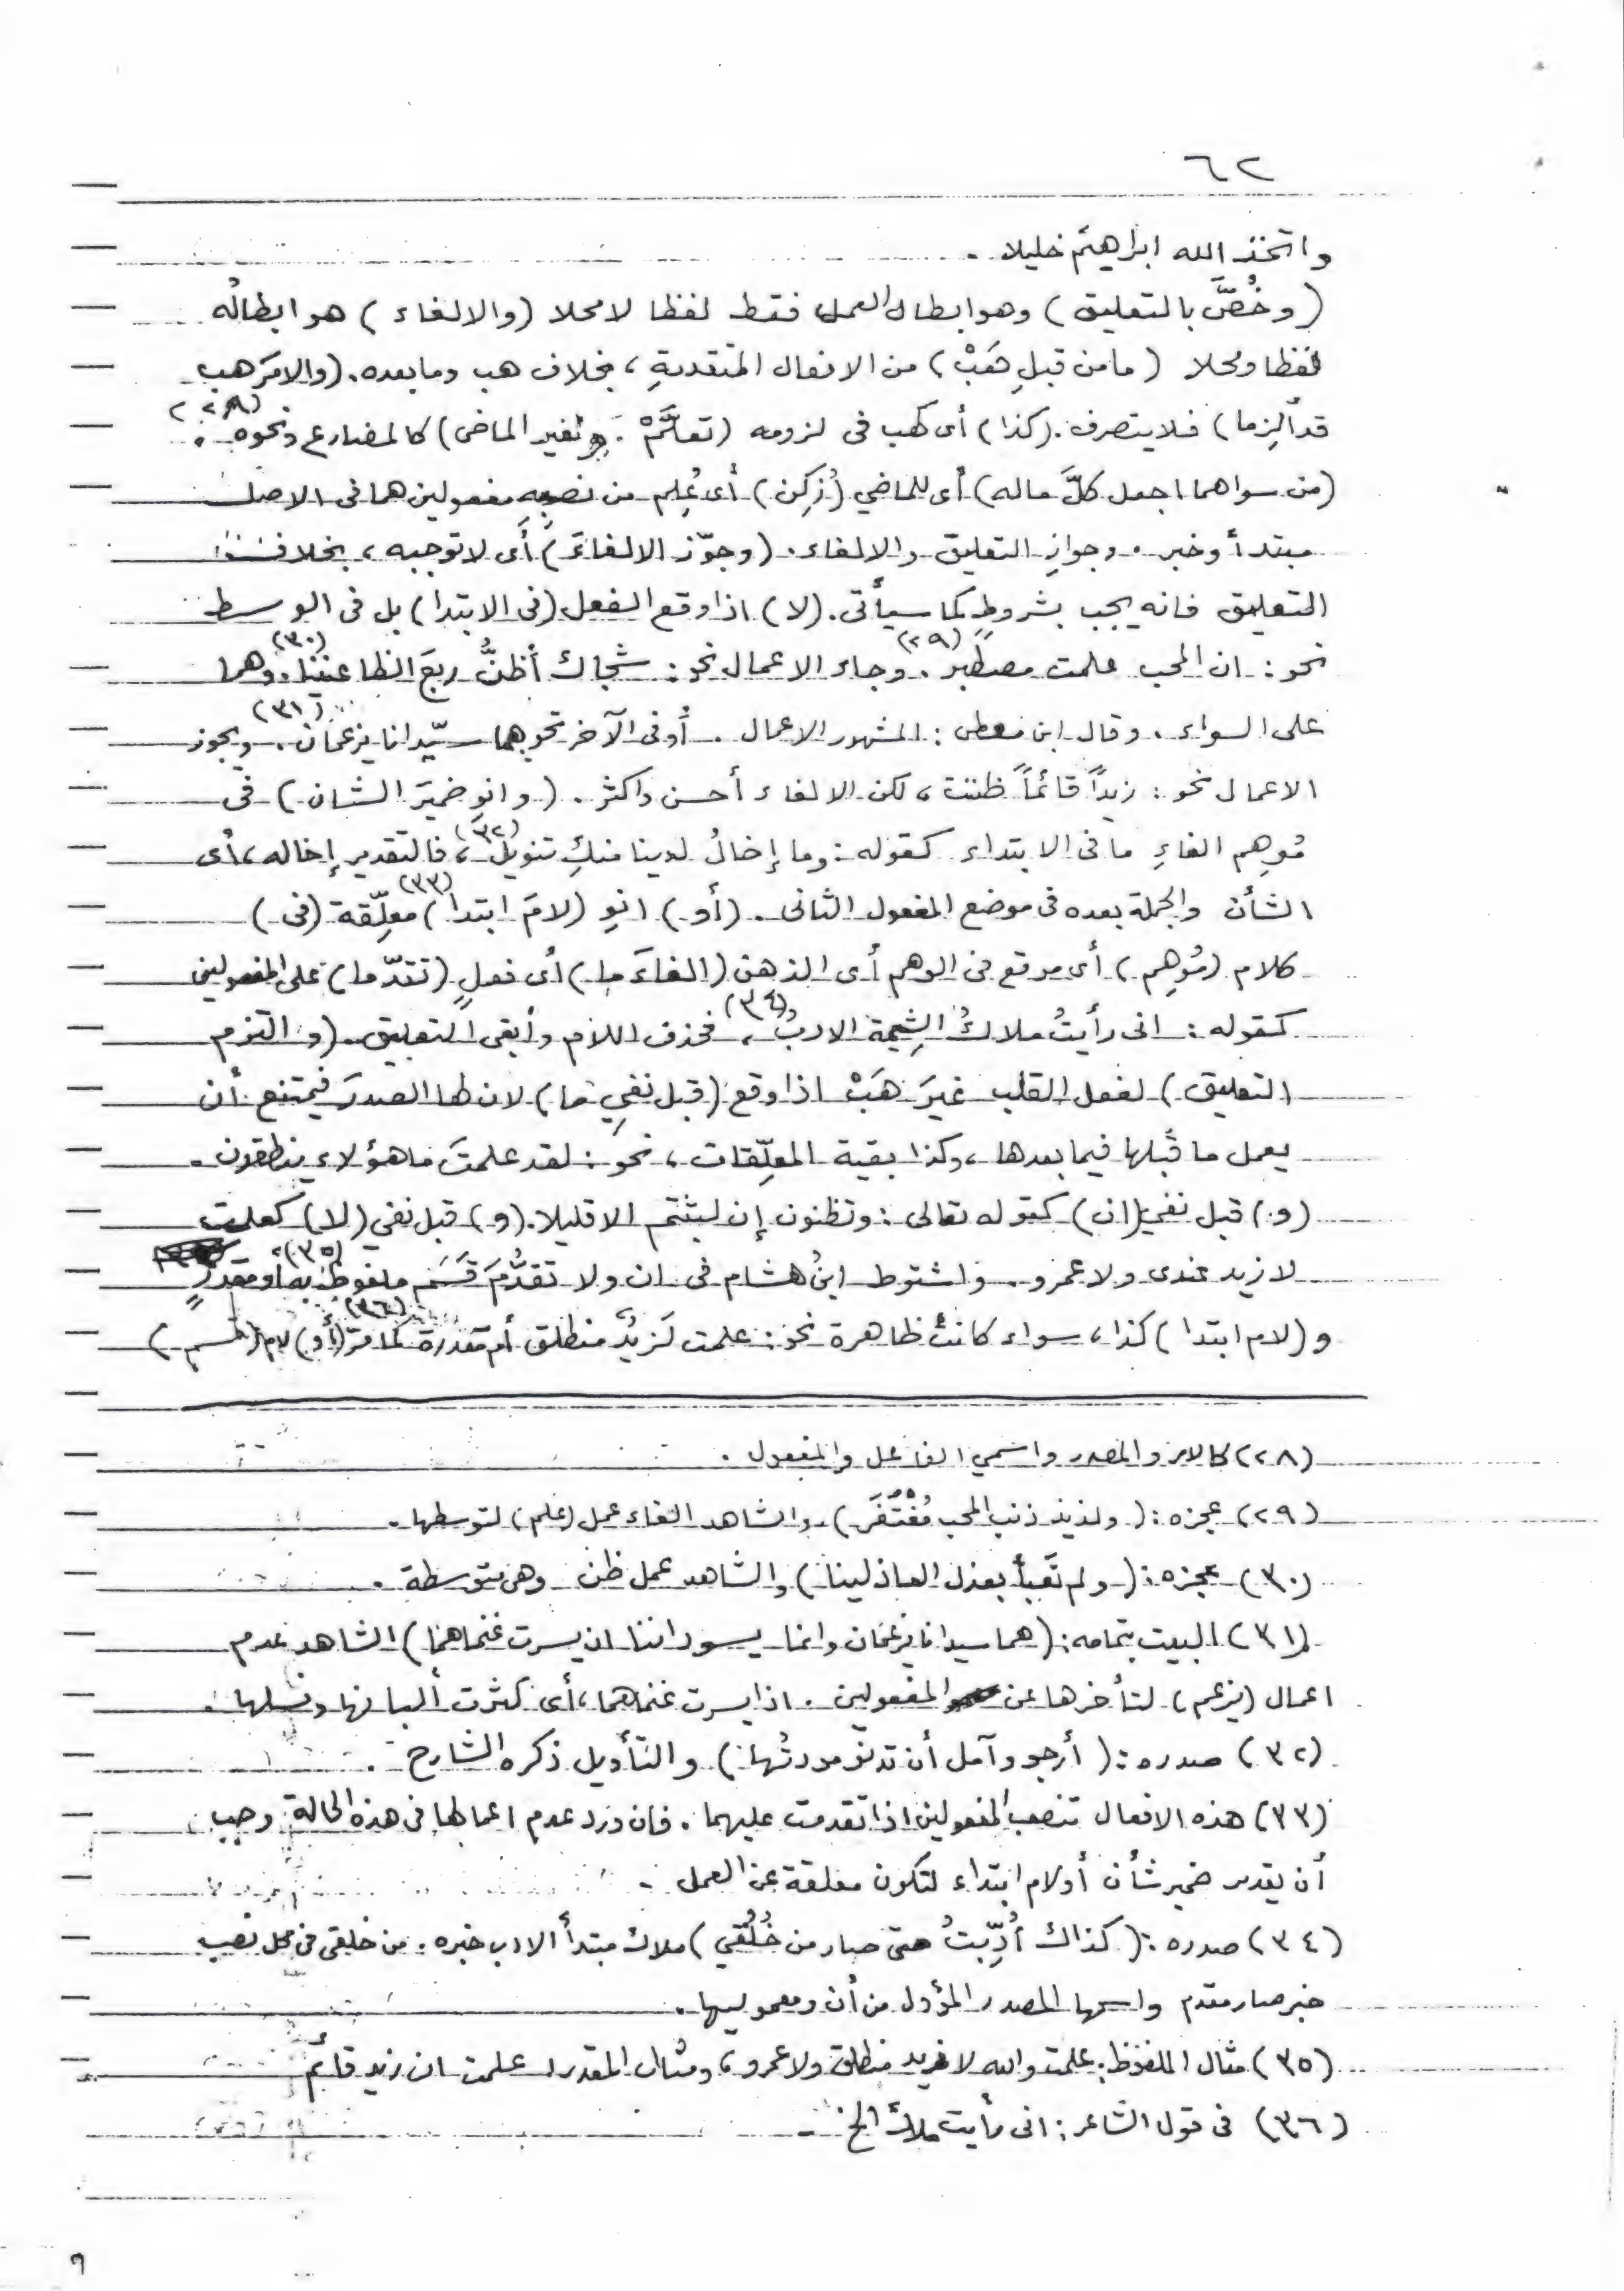 ٦٢
واتخذ الله ابراهيم خليلا .
(وخُصَّ بالتعليق) وهو ابطال العمل فقط لفظا لا محلا (والالغاء) هو ابطالُه
لفظا ومحلا (ما من قبلِ هَبْ) من الافعال المتقدمةِ ، بخلاف هب وما بعده. (والامرَ هب
قد أُلزِما) فلا يتصرف. (كذا) أى كهب فى لزومه (تعلَّمْ . ولغير الماضى) كالمضارع ونحوه (٢٨) .
(من سواهما اجعل كلَّ ماله) أى للماضي (زُكِن) أى عُلِم من نصبِه مفعولين هما فى الاصل
مبتدأ وخبر . وجوازِ التعليق والالغاء. (وجوّز الالغاءَ) أى لا توجبه ، بخلاف
التعليق فانه يجب بشروطٍ كما سيأتى. (لا) اذا وقع الفعل (فى الابتدا) بل فى الوسط
نحو : ان المحب علمت مصطبر (٢٩) . وجاء الاعمال نحو : شجاك أظنُّ ربعَ الظاعنينا (٣٠) . وهما
على السواء . وقال ابن معطى : المشهور الاعمال . أو فى الآخر نحو هما سيّدانا يزعمان (٣١) . ويجوز
الاعمال نحو : زيداً قائماً ظننت ، لكن الالغاء أحسن واكثر . (وانوِ ضميرَ الشان) فى
مُوهِم الغاءِ ما فى الابتداء كقوله : وما إخالُ لدينا منكِ تنويلُ (٣٢) ، فالتقدير إخاله ، أى
الشأن والجملة بعده فى موضع المفعول الثانى . (أو) انوِ (لامَ ابتدا) (٣٣) معلِّقة (فى)
كلام (مُوهِم) أى موقع فى الوهم أى الذهن (الغاءَ ما) أى فعلٍ (تقدّما) على المفعولين
كقوله : انى رأيتُ ملاكُ الشِيمة الادبُ (٣٤) ، فحذف اللام وأبقى التعليق . (والتزم
التعليق) لفعل القلب غيرَ هَبْ اذا وقع (قبل نفيِ ما) لان لها الصدرَ فيمتنع أن
يعمل ما قبلها فيما بعدها ، وكذا بقية المعلِّقات ، نحو : لقد علمتَ ما هؤلاء ينطقون .
(و) قبل نفي (ان) كقوله تعالى : وتظنون إن لبثتم الا قليلا. (و) قبل نفي (لا) كعلمت
لا زيد عندى ولا عمرو . واشتوط ابنُ هشام فى ان ولا تقدُّمَ قَسَم ملفوظ به او مقدرٍ (٣٥)
و (لام ابتدا) كذا ، سواء كانتْ ظاهرة نحو : علمت لَزيدٌ منطلق أم مقدرة كما مرّ (٣٦) (أو) لام (قسم)
(٢٨) كالامر والمصدر واسمي الفاعل والمفعول .
(٢٩) عجزه : (ولذيذ ذنب المحب مُغْتَفَر) . والشاهد الغاء عمل (علم) لتوسطها .
(٣٠) عجزه : (ولم تَعبأْ بعذل العاذلينا) والشاهد عمل ظن وهى متوسطة .
(٣١) البيت بتمامه : (هما سيدانا يزعمان وانما يسوداننا ان يسرت غنماهما) الشاهد عدم
اعمال (يزعم) لتأخرها عن المفعولين . اذا يسرت غنماهما ، أى كثرت ألبانها ونسلها .
(٣٢) صدره : (أرجو وآمل أن تدنوَ مودتُها) والتأويل ذكره الشارح .
(٣٣) هذه الافعال تنصب المفعولين اذا تقدمت عليهما . فان ورد عدم اعمالها فى هذه الحالة وجب
أن يقدر ضمير شأن أو لام ابتداء لتكون معلقة عن العمل .
(٣٤) صدره : (كذاك أُدِّبتُ حتى صار من خُلُقي) ملاك مبتدأ الادب خبره . من خلقى فى محل نصب
خبر صار مقدم واسمها المصدر المؤول من أن ومعموليها .
(٣٥) مثال الملفوظ : علمت والله لا زيد منطلق ولا عمرو ، ومثال المقدر : علمت ان زيد قائم
(٣٦) فى قول الشاعر : انى رأيت ملاك الخ .